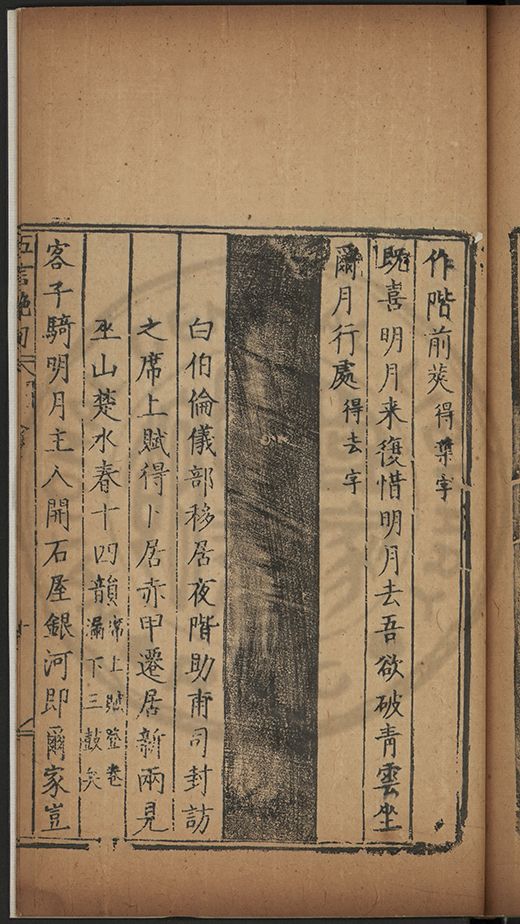 作階前蓂得蓂字
既喜明月来復惜明月去吾欲破青雲坐
爾月行處得去字
白伯倫儀部移居夜階助甫司封訪
之席上賦得卜居赤甲遷居新兩見
巫山楚水春十四韻席上賦登卷漏下三鼓矣
客子騎明月主人開石屋銀河即爾家豈
五言絶句